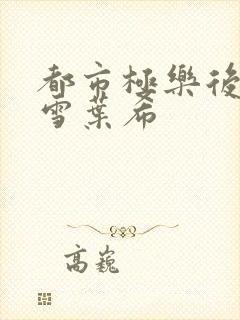 都市極樂後
雪葉希
高巍